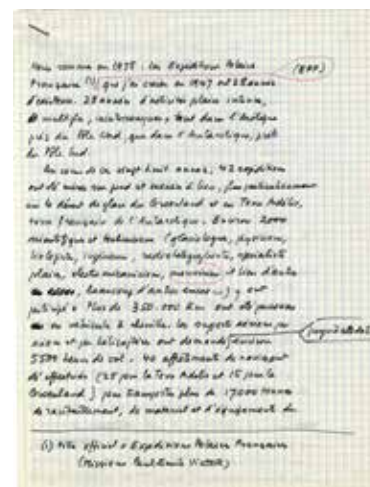 Nous sommes en 1975. Les Expéditions Polaires (EPF)
Françaises (1) que j'ai créées en 1947 ont 28 années
d'existence. 28 années d'activité polaire intense,
multiple, ininterrompue, tant dans l'Arctique
près du Pôle Nord, que dans l'Antarctique, près
du Pôle Sud.
Au cours de ces vingt huit années, 42 expéditions
ont été mises sur pied et menées à bien, plus particulièrement
sur le désert de glace du Groenland et en Terre Adélie,
terre française de l'Antarctique. Environ 2000
scientifiques et techniciens (glaciologues, physiciens,
biologistes, ingénieurs, radiotélégraphistes, spécialistes
polaires, électro-mécaniciens, et bien d'autres
beaucoup d'autres encore...) y ont
participé. Plus de 350.000 Km ont été parcourus
en véhicules à chenilles. Les supports aériens par
avion et par hélicoptère ont demandé environ
5500 heures de vol. 40 affrètements de navires ont
été effectués (25 pour la Terre Adélie et 15 pour le
Groenland) pour transporter plus de 17000 tonnes
de ravitaillement, de matériel et d'équipements de
(1) Titre officiel : Expéditions Polaires Françaises
(Missions Paul-Emile Victor)